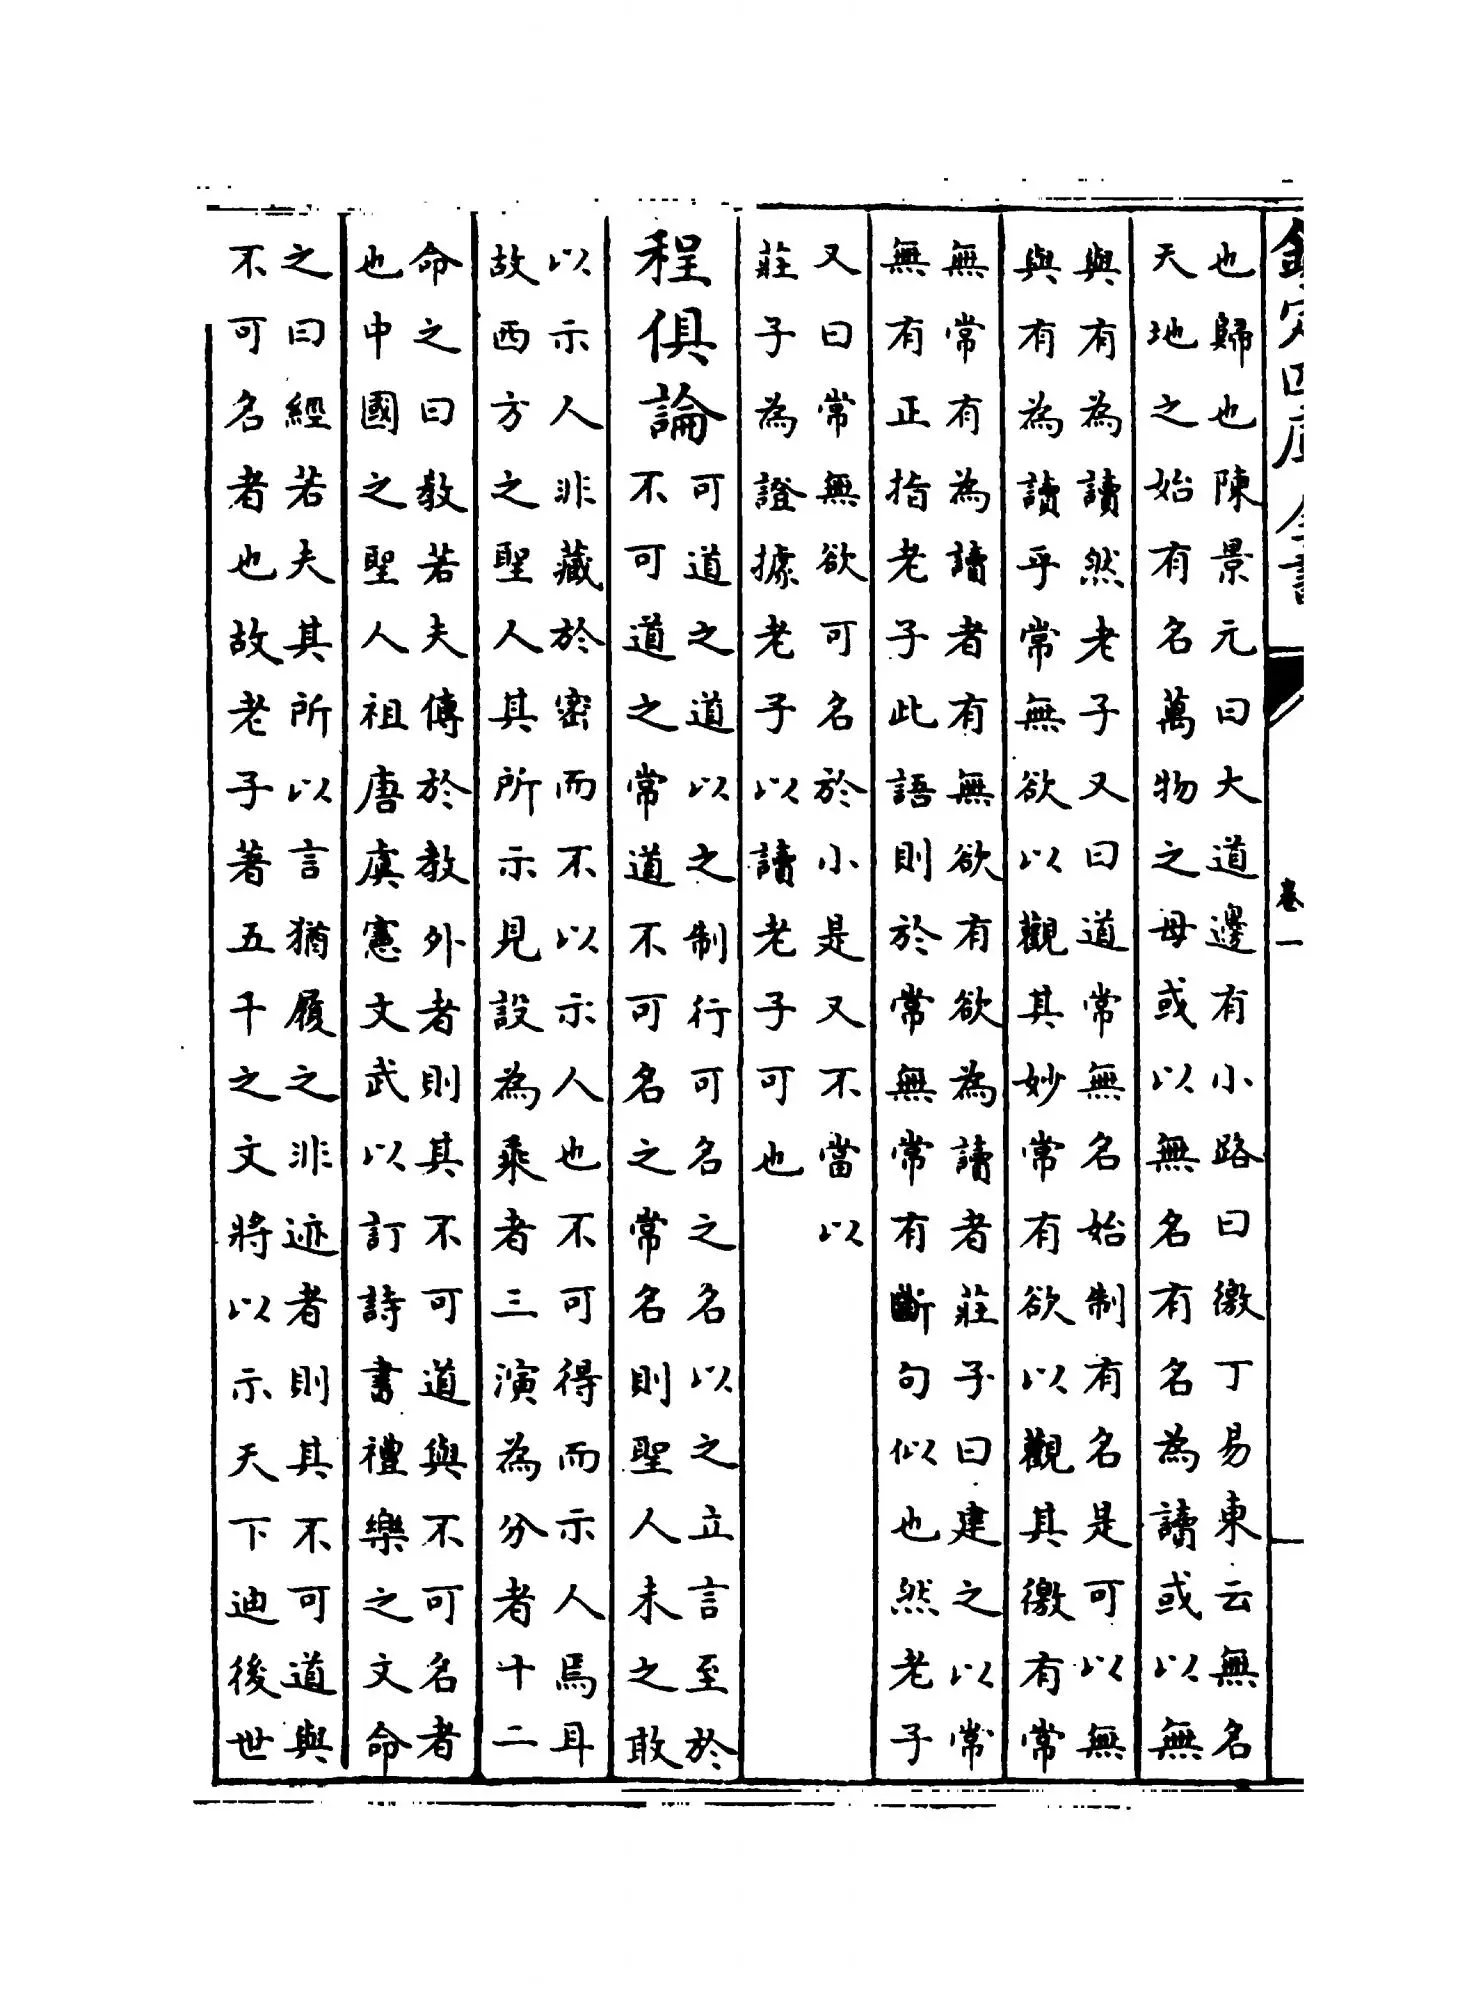 欽定四庫全書
卷一
也歸也陳景元曰大道邊有小路曰徼丁易東云無名
天地之始有名萬物之母或以無名有名為讀或以無
與有為讀然老子又曰道常無名始制有名是可以無
與有為讀乎常無欲以觀其妙常有欲以觀其徼有常
無常有為讀者有無欲有欲為讀者莊子曰建之以常
無有正指老子此語則於常無常有斷句似也然老子
又曰常無欲可名於小是又不當以
莊子為證據老子以讀老子可也
程俱論
可道之道以之制行可名之名以之立言至於
不可道之常道不可名之常名則聖人未之敢
以示人非藏於密而不以示人也不可得而示人焉耳
故西方之聖人其所示見設為乘者三演為分者十二
命之曰教若夫傳於教外者則其不可道與不可名者
也中國之聖人祖唐虞憲文武以訂詩書禮樂之文命
之曰經若夫其所以言猶履之非迹者則其不可道與
不可名者也故老子著五千之文將以示天下迪後世